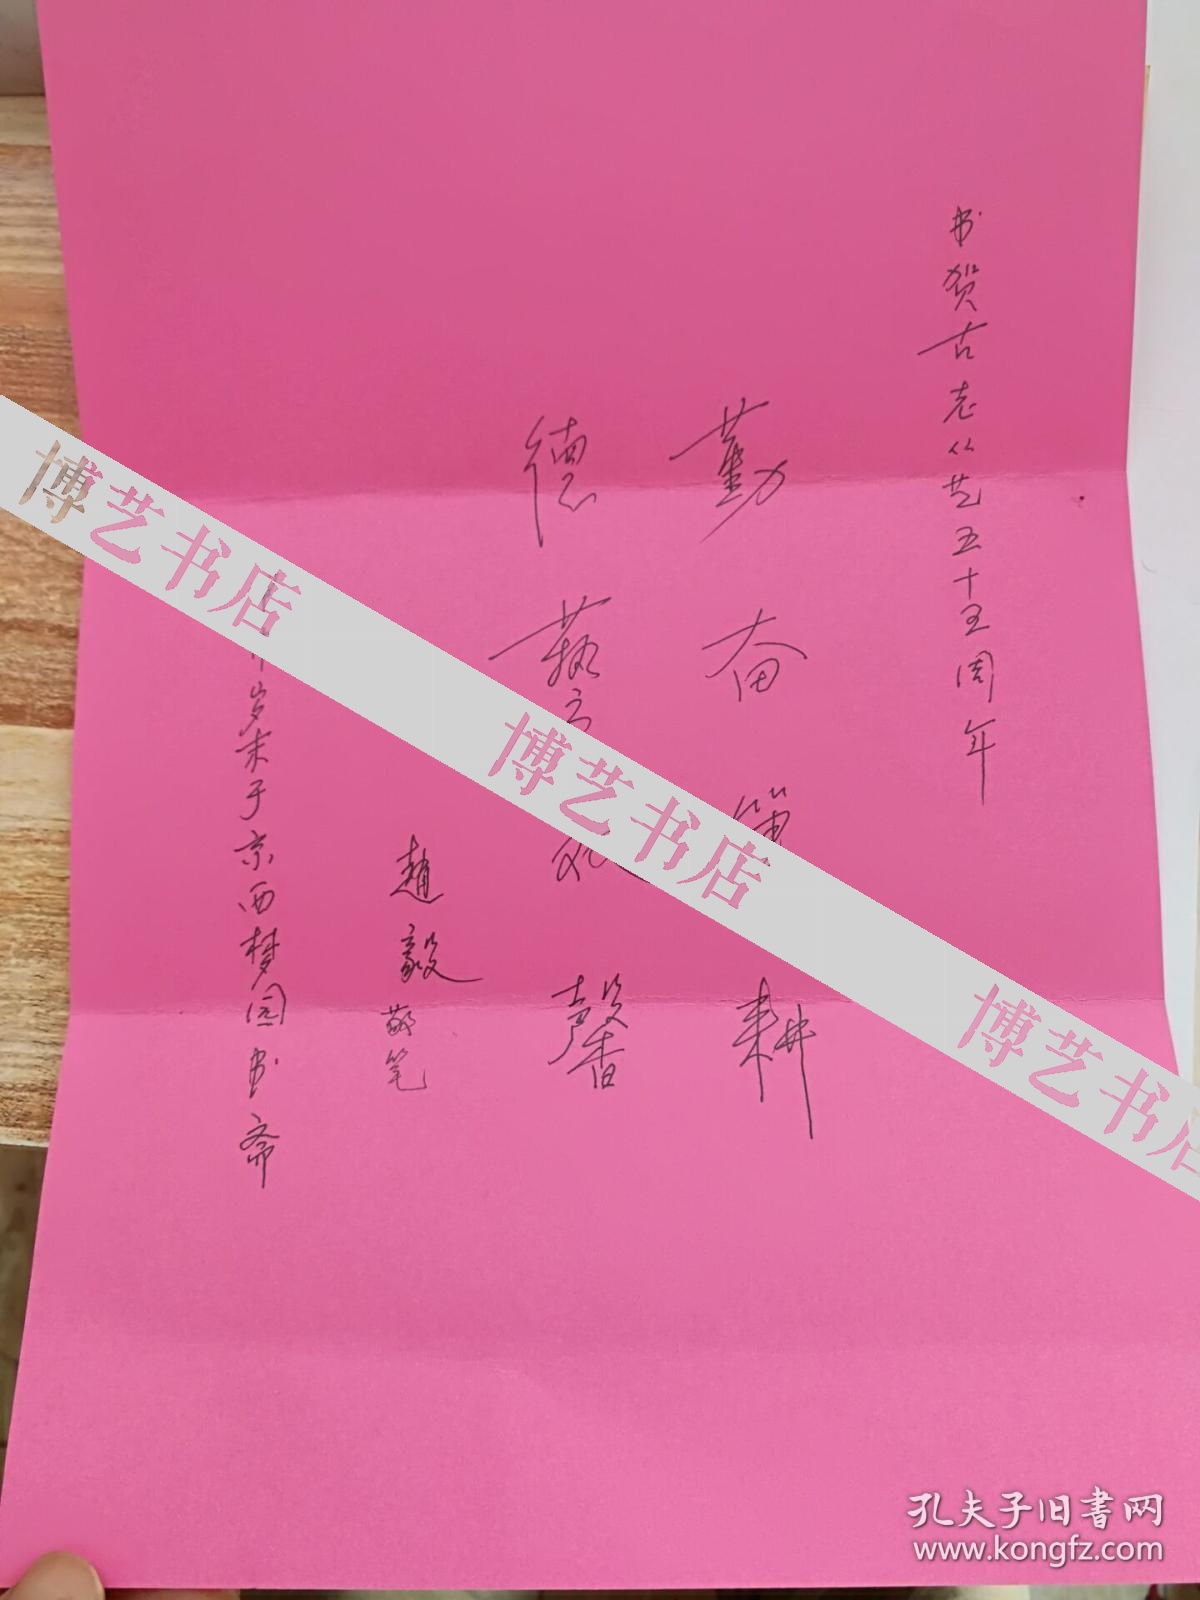 书贺古志从艺五十五周年
勤奋笔耕
德艺
馨
赵毅敬笔
岁末于京西梦园书斋
博艺书店
博艺书店
博艺书店
孔夫子旧书网
www.kongfz.com